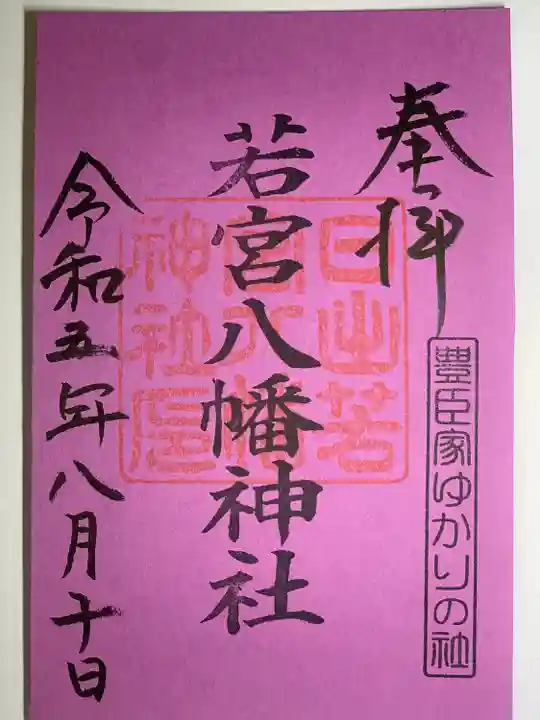 奉拝
豊臣家ゆかりの社
若宮八幡神社
日出若
宮八幡
神社
令和五年八月十日